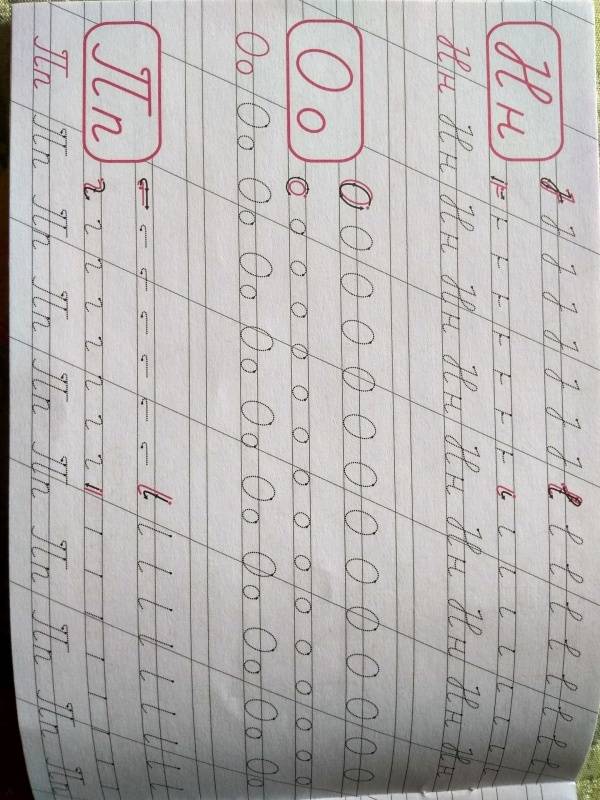 Нн
Нн Нн Нн Нн Нн Нн Нн Нн Нн Нн
Оо
О О О О О О О О О О О О О
о о о о о о о о о о о о о о о
Оо Оо Оо Оо Оо Оо Оо Оо Оо Оо Оо
Пп
Пп Пп Пп Пп Пп Пп Пп Пп Пп Пп